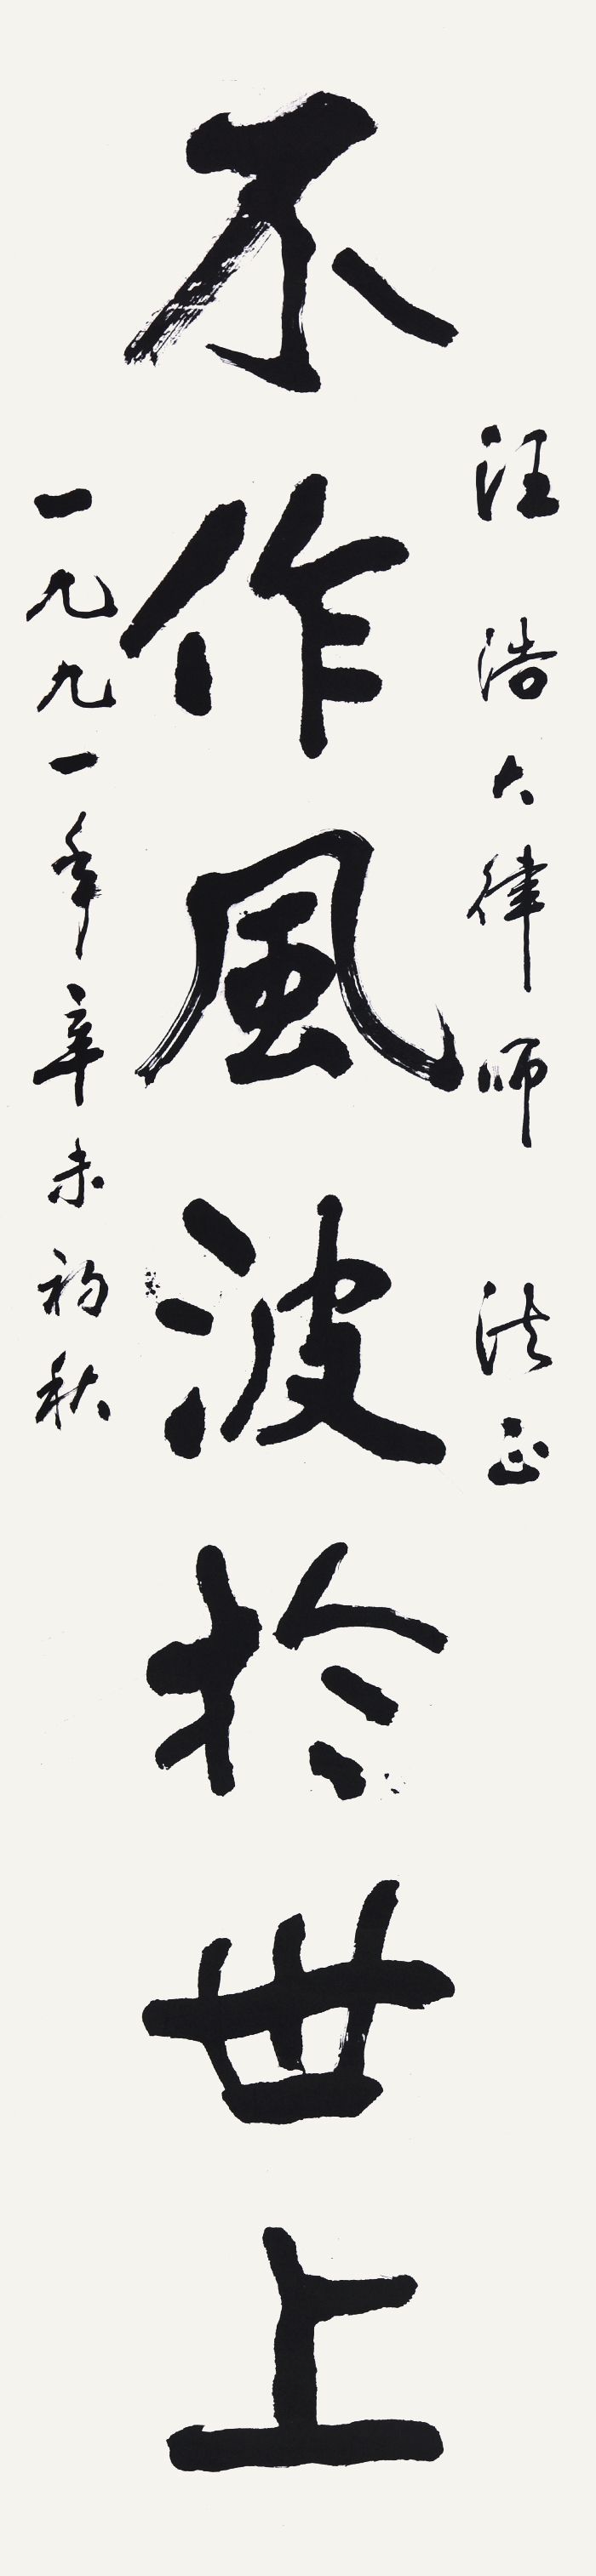 汪浩大律师法正
不作風波於世上
一九九一年辛未初秋